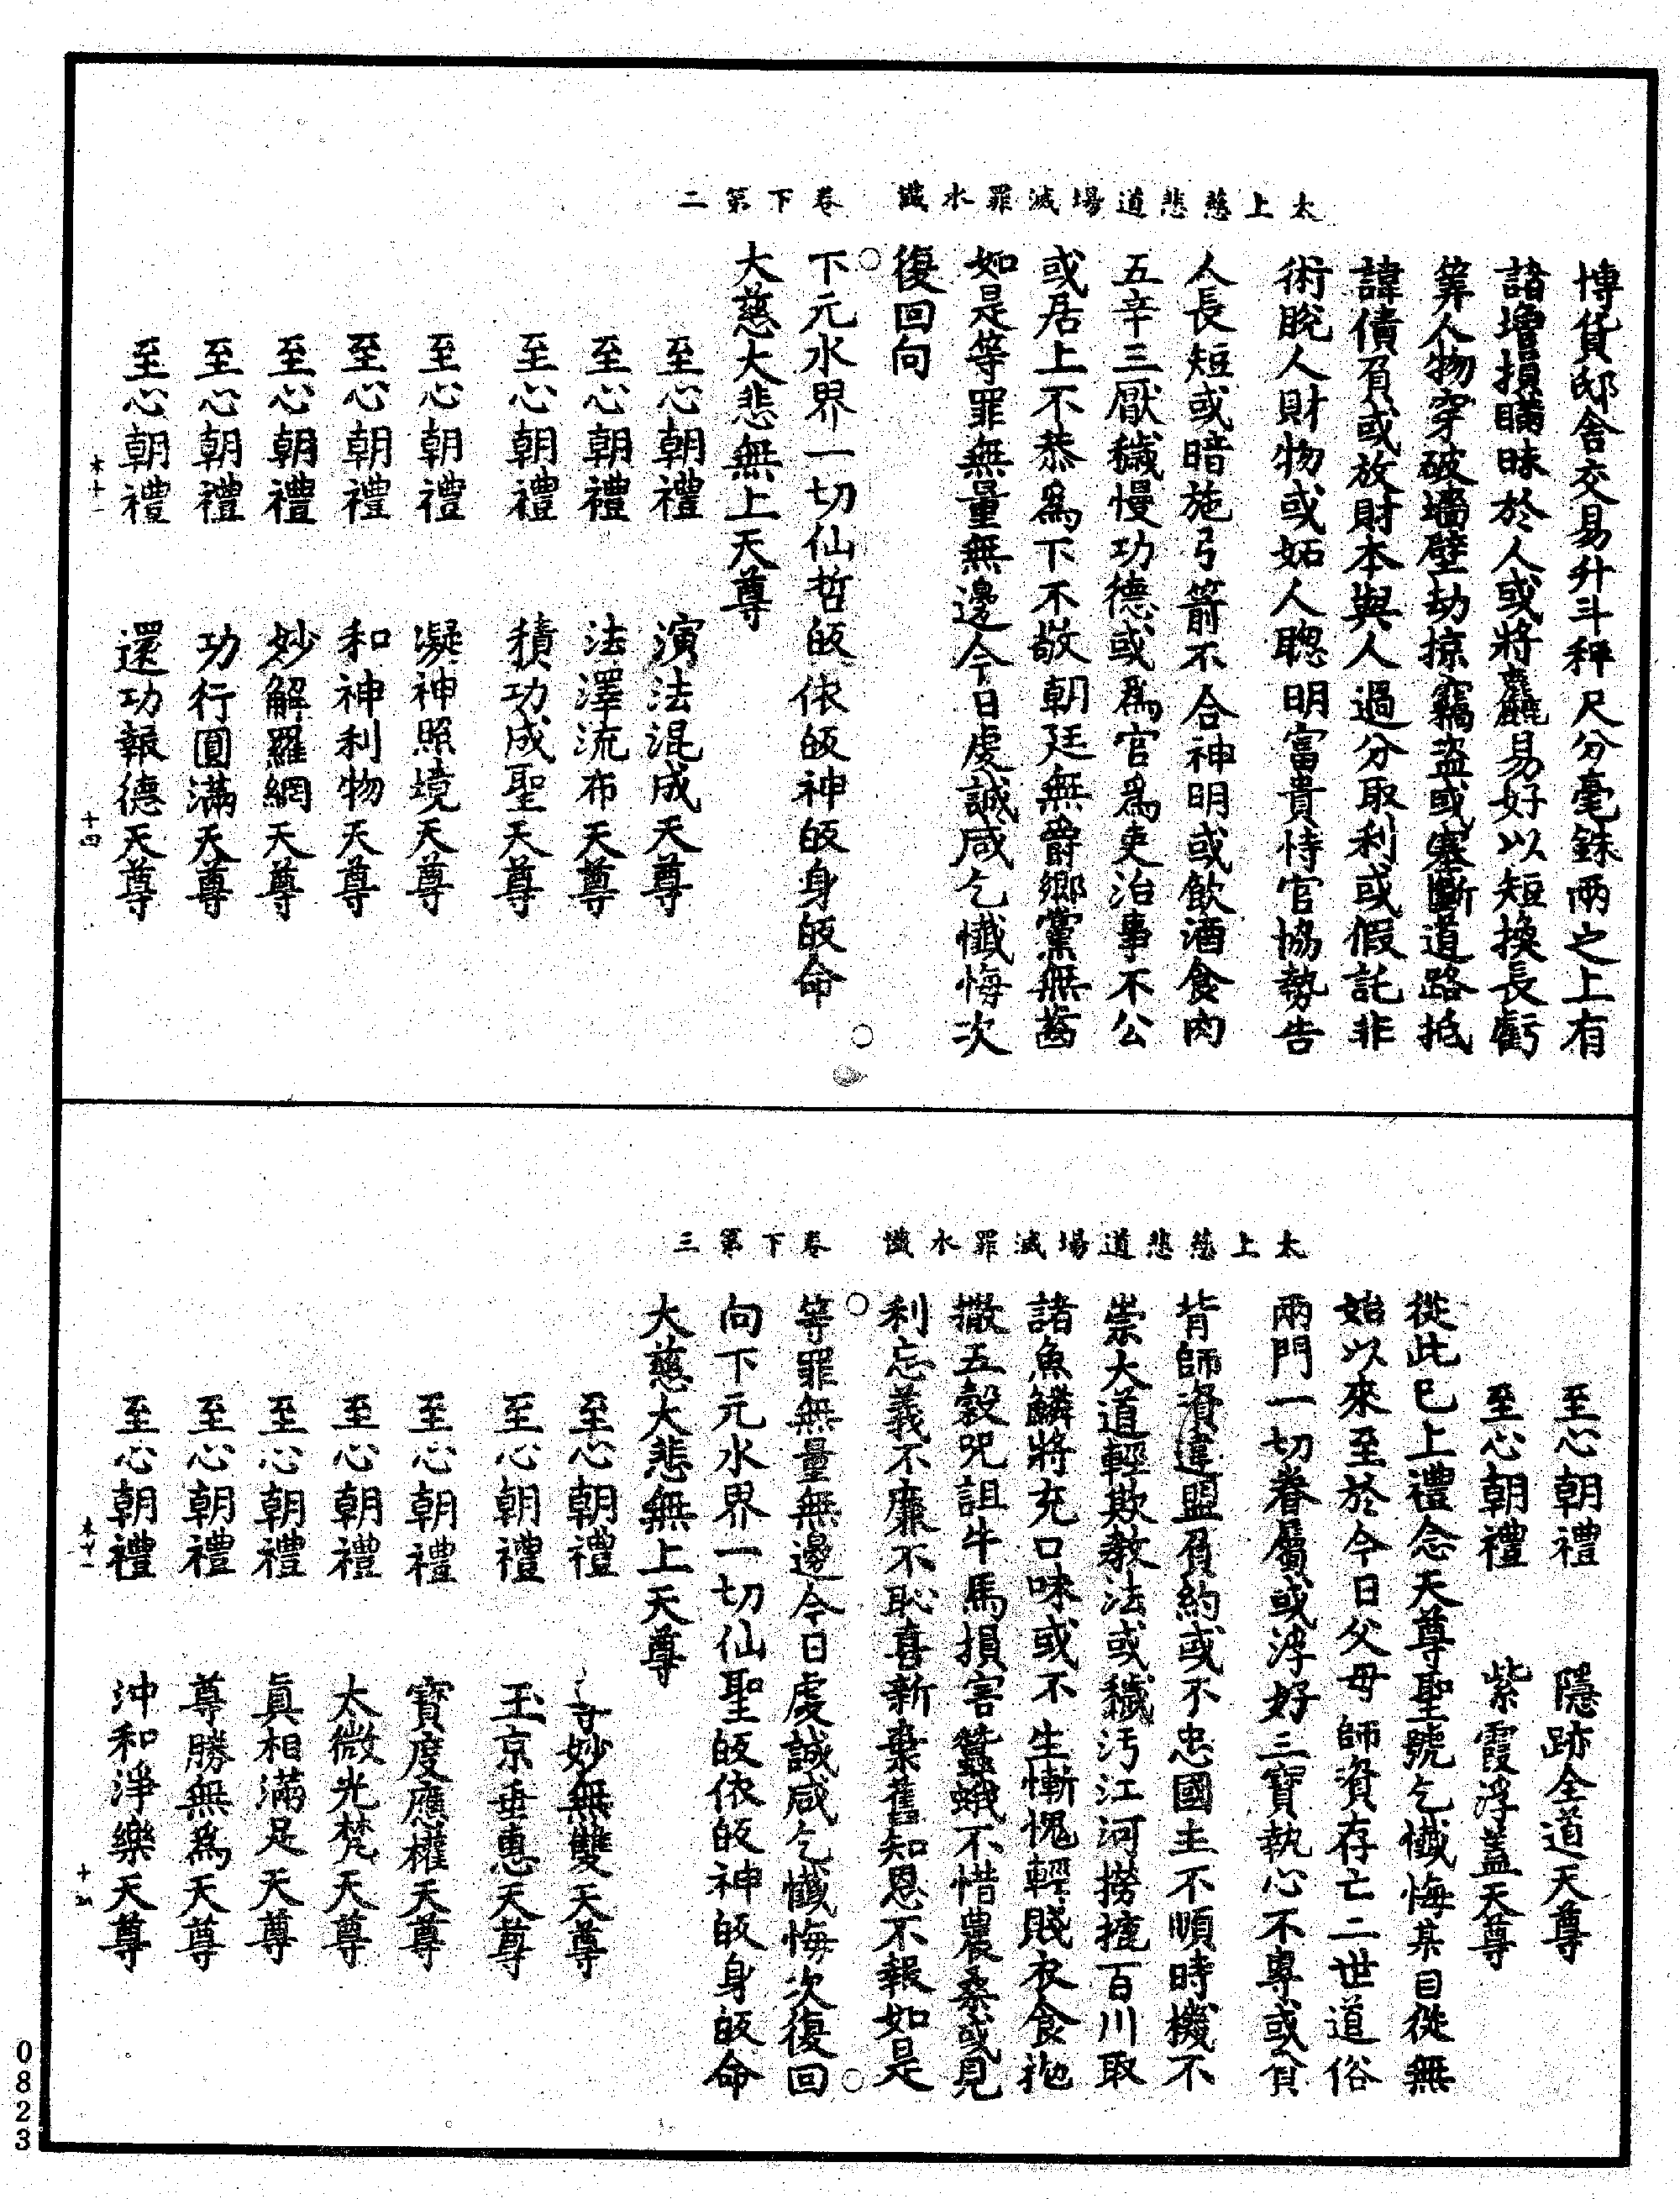 太上慈悲道場滅罪水懺　卷下第二
博貨邸舍交易升斗秤尺分毫銖兩之上有
諸增損瞞昧於人或將麤易好以短換長虧
筭人物穿破墻壁劫掠竊盜或塞斷道路抵
諱債負或放財本與人過分取利或假託非
術脫人財物或妬人聰明富貴恃官協勢告
人長短或暗施弓箭不合神明或飲酒食肉
五辛三厭穢慢功德或爲官爲吏治事不公
或居上不恭爲下不敬朝廷無爵鄉黨無齒
如是等罪無量無邊今日虔誠咸乞懺悔次
復回向
下元水界一切仙哲皈依皈神皈身皈命
大慈大悲無上天尊
至心朝禮　演法混成天尊
至心朝禮　法澤流布天尊
至心朝禮　積功成聖天尊
至心朝禮　凝神照境天尊
至心朝禮　和神利物天尊
至心朝禮　妙解羅網天尊
至心朝禮　功行圓滿天尊
至心朝禮　還功報德天尊
十四
太上慈悲道場滅罪水懺　卷下第三
至心朝禮　隱跡全道天尊
至心朝禮　紫霞浮蓋天尊
從此已上禮念天尊聖號乞懺悔某自從無
始以來至於今日父母師資存亡二世道俗
兩門一切眷屬或浮好三寶執心不專或貧
背師資違盟負約或不忠國主不順時機不
崇大道輕欺教法或穢污江河撈摝百川取
諸魚鱗將充口味或不生慚愧輕賤衣食拋
撒五穀咒詛牛馬損害蠶蛾不惜農桑或見
利忘義不廉不恥喜新棄舊知恩不報如是
等罪無量無邊今日虔誠咸乞懺悔次復回
向下元水界一切仙聖皈依皈神皈身皈命
大慈大悲無上天尊
至心朝禮　妙無雙天尊
至心朝禮　玉京垂惠天尊
至心朝禮　寶度應權天尊
至心朝禮　太微光梵天尊
至心朝禮　眞相滿足天尊
至心朝禮　尊勝無爲天尊
至心朝禮　沖和淨樂天尊
0823